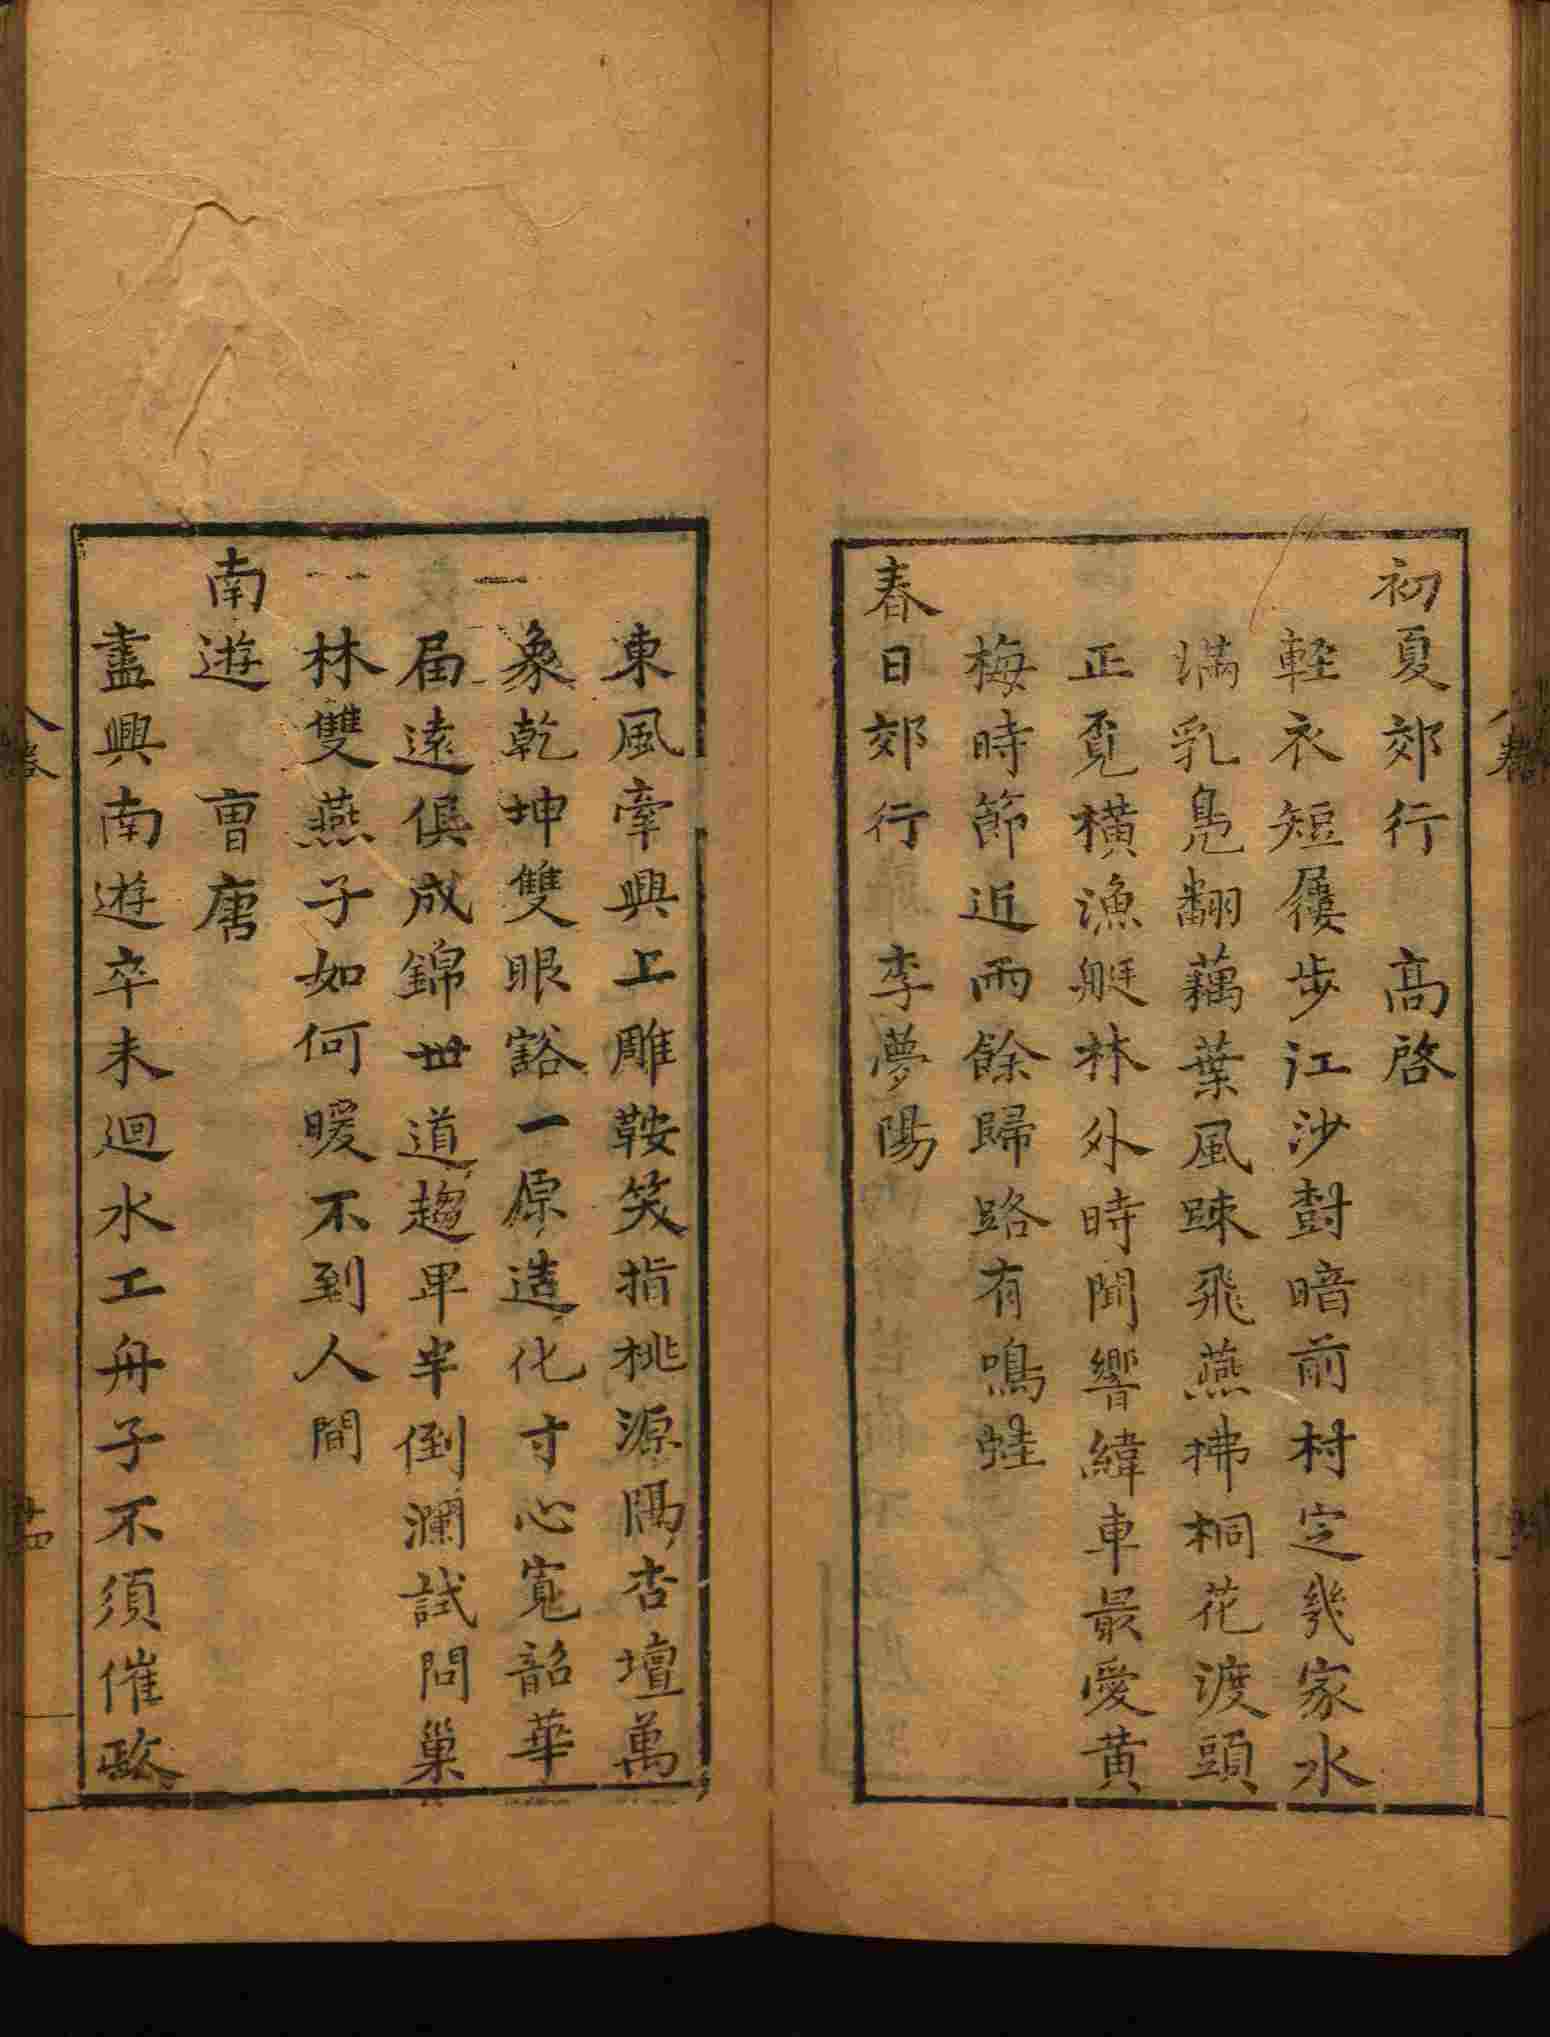 初夏郊行　高啓
軽衣短屨步江沙樹暗前村定幾家水
滿乳鳧翻藕葉風疎飛燕拂桐花渡頭
正覔橫漁艇林外時聞響緯車最愛黄
梅時節近雨餘歸路有鳴蛙
春日郊行　李夢陽
東風牽興上雕鞍笑指桃源隔杏壇萬
象乾坤雙眼豁一原造化寸心寬韶華
屆遠俱成錦世道趨卑半倒瀾試問巢
林雙燕子如何暖不到人間
南遊　曺唐
盡興南遊卒未迴水工舟子不須催政